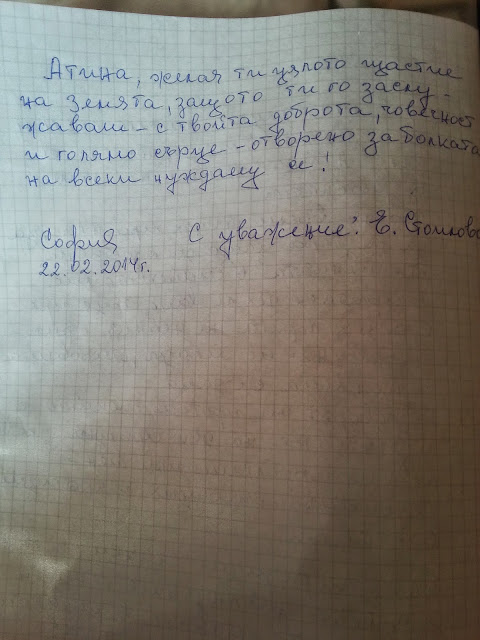 Атина, желая ти цялото щастие
на Земята, защото ти го заслу-
жаваш - с твойта доброта, човечност
и голямо сърце - отворено за болката
на всеки нуждаещ се!
София С уважение: Е. Стоилова
22.02.2014г.